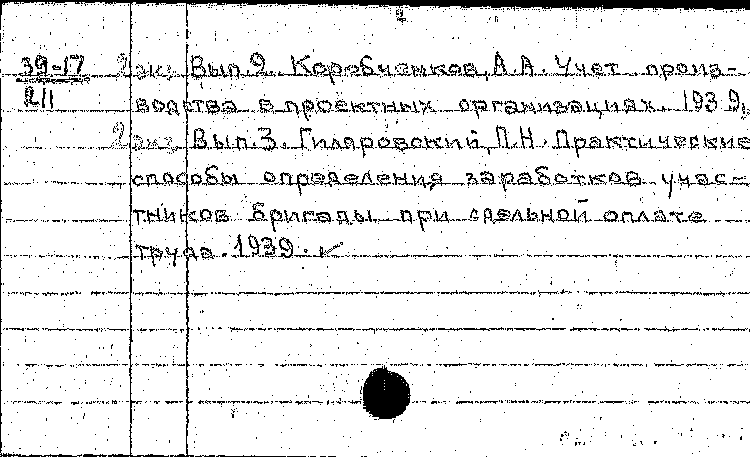 2
39-17
211
2 экз Вып. 2. Коробченков, А.А. Учет произ-
водства в проектных организациях. 1939,
2 экз Вып. 3. Гиляровский, П.Н. Практические
способы определения заработков учас-
тников бригады при сдельной оплате
труда. 1939. ✓